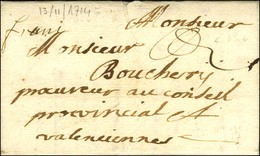 13/11/1714
franc
Monsieur
Monsieur
Bouchery
procureur au conseil
provincial A
valenciennes